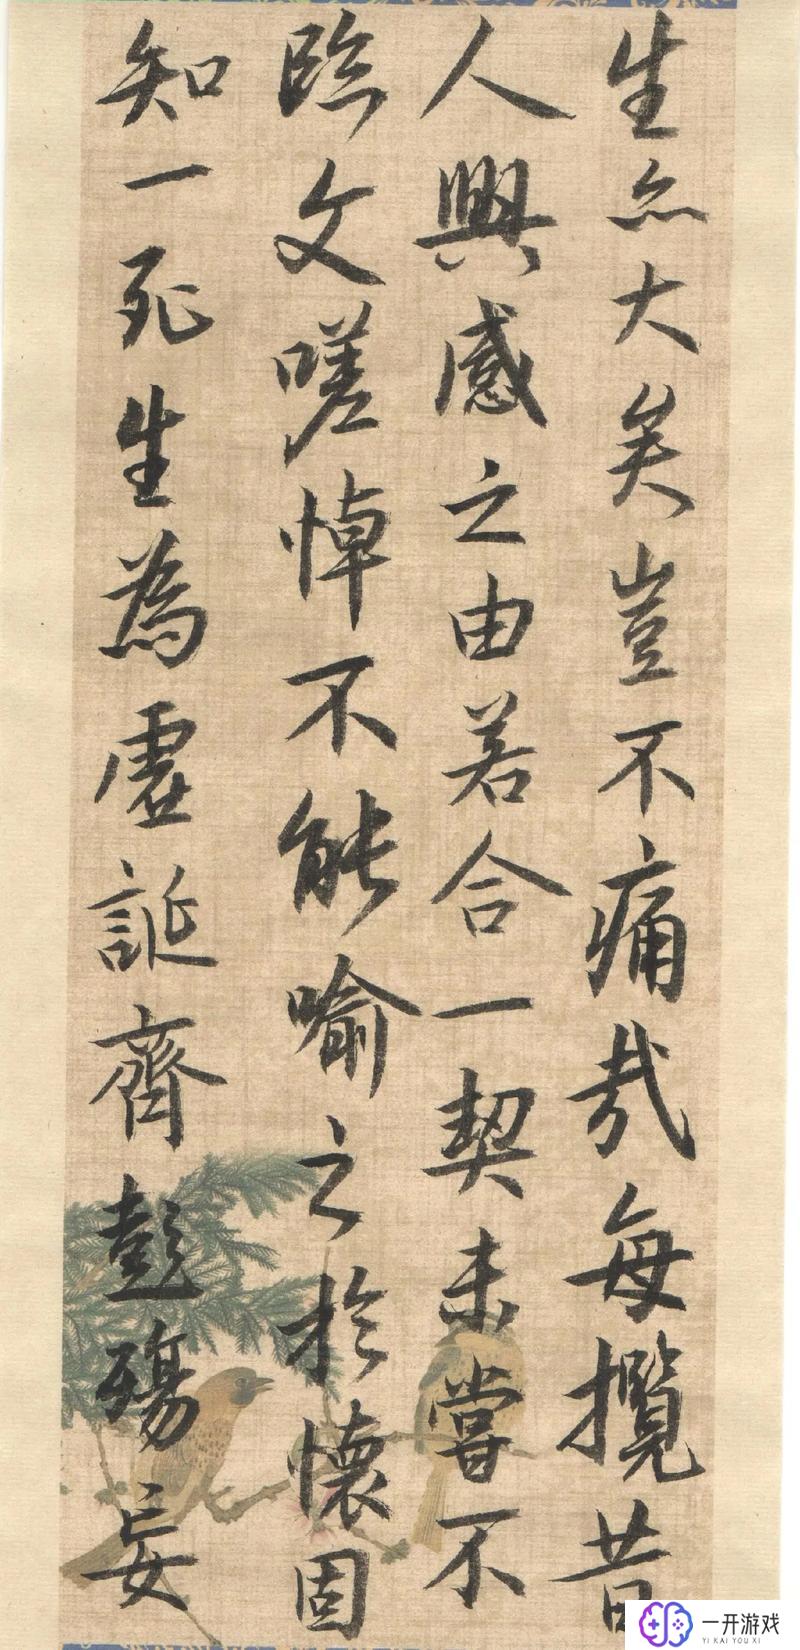 生亦大矣豈不痛哉每攬昔
人興感之由若合一契未嘗不
臨文嗟悼不能喻之於懷固
知一死生為虛誕齊彭殤妄
一开游戏
YI KAI YOU XI